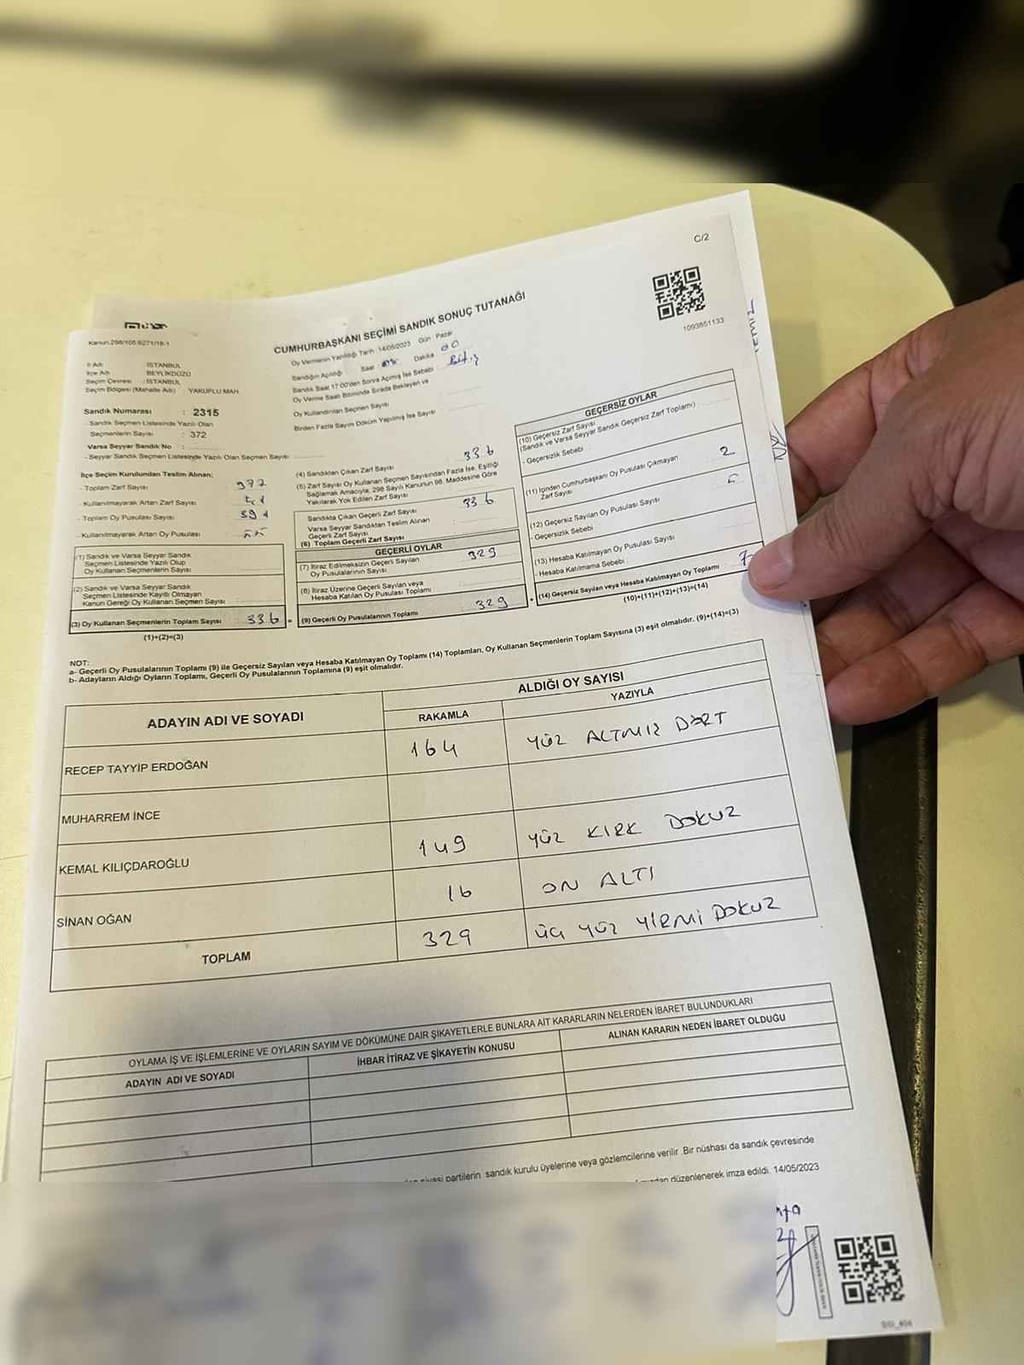 C/2
Kanun:298/105:6271/18-1
CUMHURBAŞKANI SEÇİMİ SANDIK SONUÇ TUTANAĞI
1093851133
İl Adı : İSTANBUL
İlçe Adı : BEYLİKDÜZÜ
Seçim Çevresi : İSTANBUL
Seçim Bölgesi (Mahalle Adı) : YAKUPLU MAH
Sandık Numarası : 2315
Sandık Seçmen Listesinde Yazılı Olan
Seçmenlerin Sayısı : 372
Varsa Seyyar Sandık No :
- Seyyar Sandık Seçmen Listesinde Yazılı Olan Seçmen Sayısı :
Oy Vermenin Yapıldığı Tarih : 14/05/2023 Gün : Pazar
Sandığın Açıldığı Saat Dakika 00
Sandık Saat 17:00'den Sonra Açılmış İse Sebebi
Oy Verme Saati Bitiminde Sırada Bekleyen ve
Oy Kullandırılan Seçmen Sayısı
Birden Fazla Sayım Döküm Yapılmış İse Sayısı
İlçe Seçim Kurulundan Teslim Alınan;
- Toplam Zarf Sayısı
- Kullanılmayarak Artan Zarf Sayısı
- Toplam Oy Pusulası Sayısı
- Kullanılmayarak Artan Oy Pusulası
(1) Sandık ve Varsa Seyyar Sandık
Seçmen Listesinde Yazılı Olup
Oy Kullanan Seçmenlerin Sayısı
(2) Sandık ve Varsa Seyyar Sandık
Seçmen Listesinde Kayıtlı Olmayan
Kanun Gereği Oy Kullanan Seçmen Sayısı
(3) Oy Kullanan Seçmenlerin Toplam Sayısı 336
(1)+(2)=(3)
(4) Sandıktan Çıkan Zarf Sayısı 336
(5) Zarf Sayısı Oy Kullanan Seçmen Sayısından Fazla İse, Eşitliği
Sağlamak Amacıyla, 298 Sayılı Kanunun 98. Maddesine Göre
Yakılarak Yok Edilen Zarf Sayısı
Sandıkta Çıkan Geçerli Zarf Sayısı 336
Varsa Seyyar Sandıktan Teslim Alınan
Geçerli Zarf Sayısı
(6) Toplam Geçerli Zarf Sayısı
GEÇERLİ OYLAR
(7) İtiraz Edilmeksizin Geçerli Sayılan
Oy Pusulalarının Sayısı 329
(8) İtiraz Üzerine Geçerli Sayılan veya
Hesaba Katılan Oy Pusulası Toplamı
(9) Geçerli Oy Pusulalarının Toplamı 329
GEÇERSİZ OYLAR
(10) Geçersiz Zarf Sayısı
(Sandık ve Varsa Seyyar Sandık Geçersiz Zarf Toplamı)
- Geçersizlik Sebebi
(11) İçinden Cumhurbaşkanı Oy Pusulası Çıkmayan
Zarf Sayısı 2
(12) Geçersiz Sayılan Oy Pusulası Sayısı
- Geçersizlik Sebebi
(13) Hesaba Katılmayan Oy Pusulası Sayısı
- Hesaba Katılmama Sebebi
(14) Geçersiz Sayılan veya Hesaba Katılmayan Oy Toplamı 7
(10)+(11)+(12)+(13)=(14)
NOT:
a- Geçerli Oy Pusulalarının Toplamı (9) ile Geçersiz Sayılan veya Hesaba Katılmayan Oy Toplamı (14) Toplamları, Oy Kullanan Seçmenlerin Toplam Sayısına (3) eşit olmalıdır. (9)+(14)=(3)
b- Adayların Aldığı Oyların Toplamı, Geçerli Oy Pusulalarının Toplamına (9) eşit olmalıdır.
ADAYIN ADI VE SOYADI
ALDIĞI OY SAYISI
RAKAMLA YAZIYLA
RECEP TAYYİP ERDOĞAN 164 YÜZ ALTMIŞ DÖRT
MUHARREM İNCE
KEMAL KILIÇDAROĞLU 149 YÜZ KIRK DOKUZ
SİNAN OĞAN 16 ON ALTI
TOPLAM 329 ÜÇ YÜZ YİRMİ DOKUZ
OYLAMA İŞ VE İŞLEMLERİNE VE OYLARIN SAYIM VE DÖKÜMÜNE DAİR ŞİKAYETLERLE BUNLARA AİT KARARLARIN NELERDEN İBARET BULUNDUKLARI
ADAYIN ADI VE SOYADI İHBAR İTİRAZ VE ŞİKAYETİN KONUSU ALINAN KARARIN NEDEN İBARET OLDUĞU
siyasi partilerin sandık kurulu üyelerine veya gözlemcilerine verilir. Bir nüshası da sandık çevresinde
düzenlenerek imza edildi. 14/05/2023